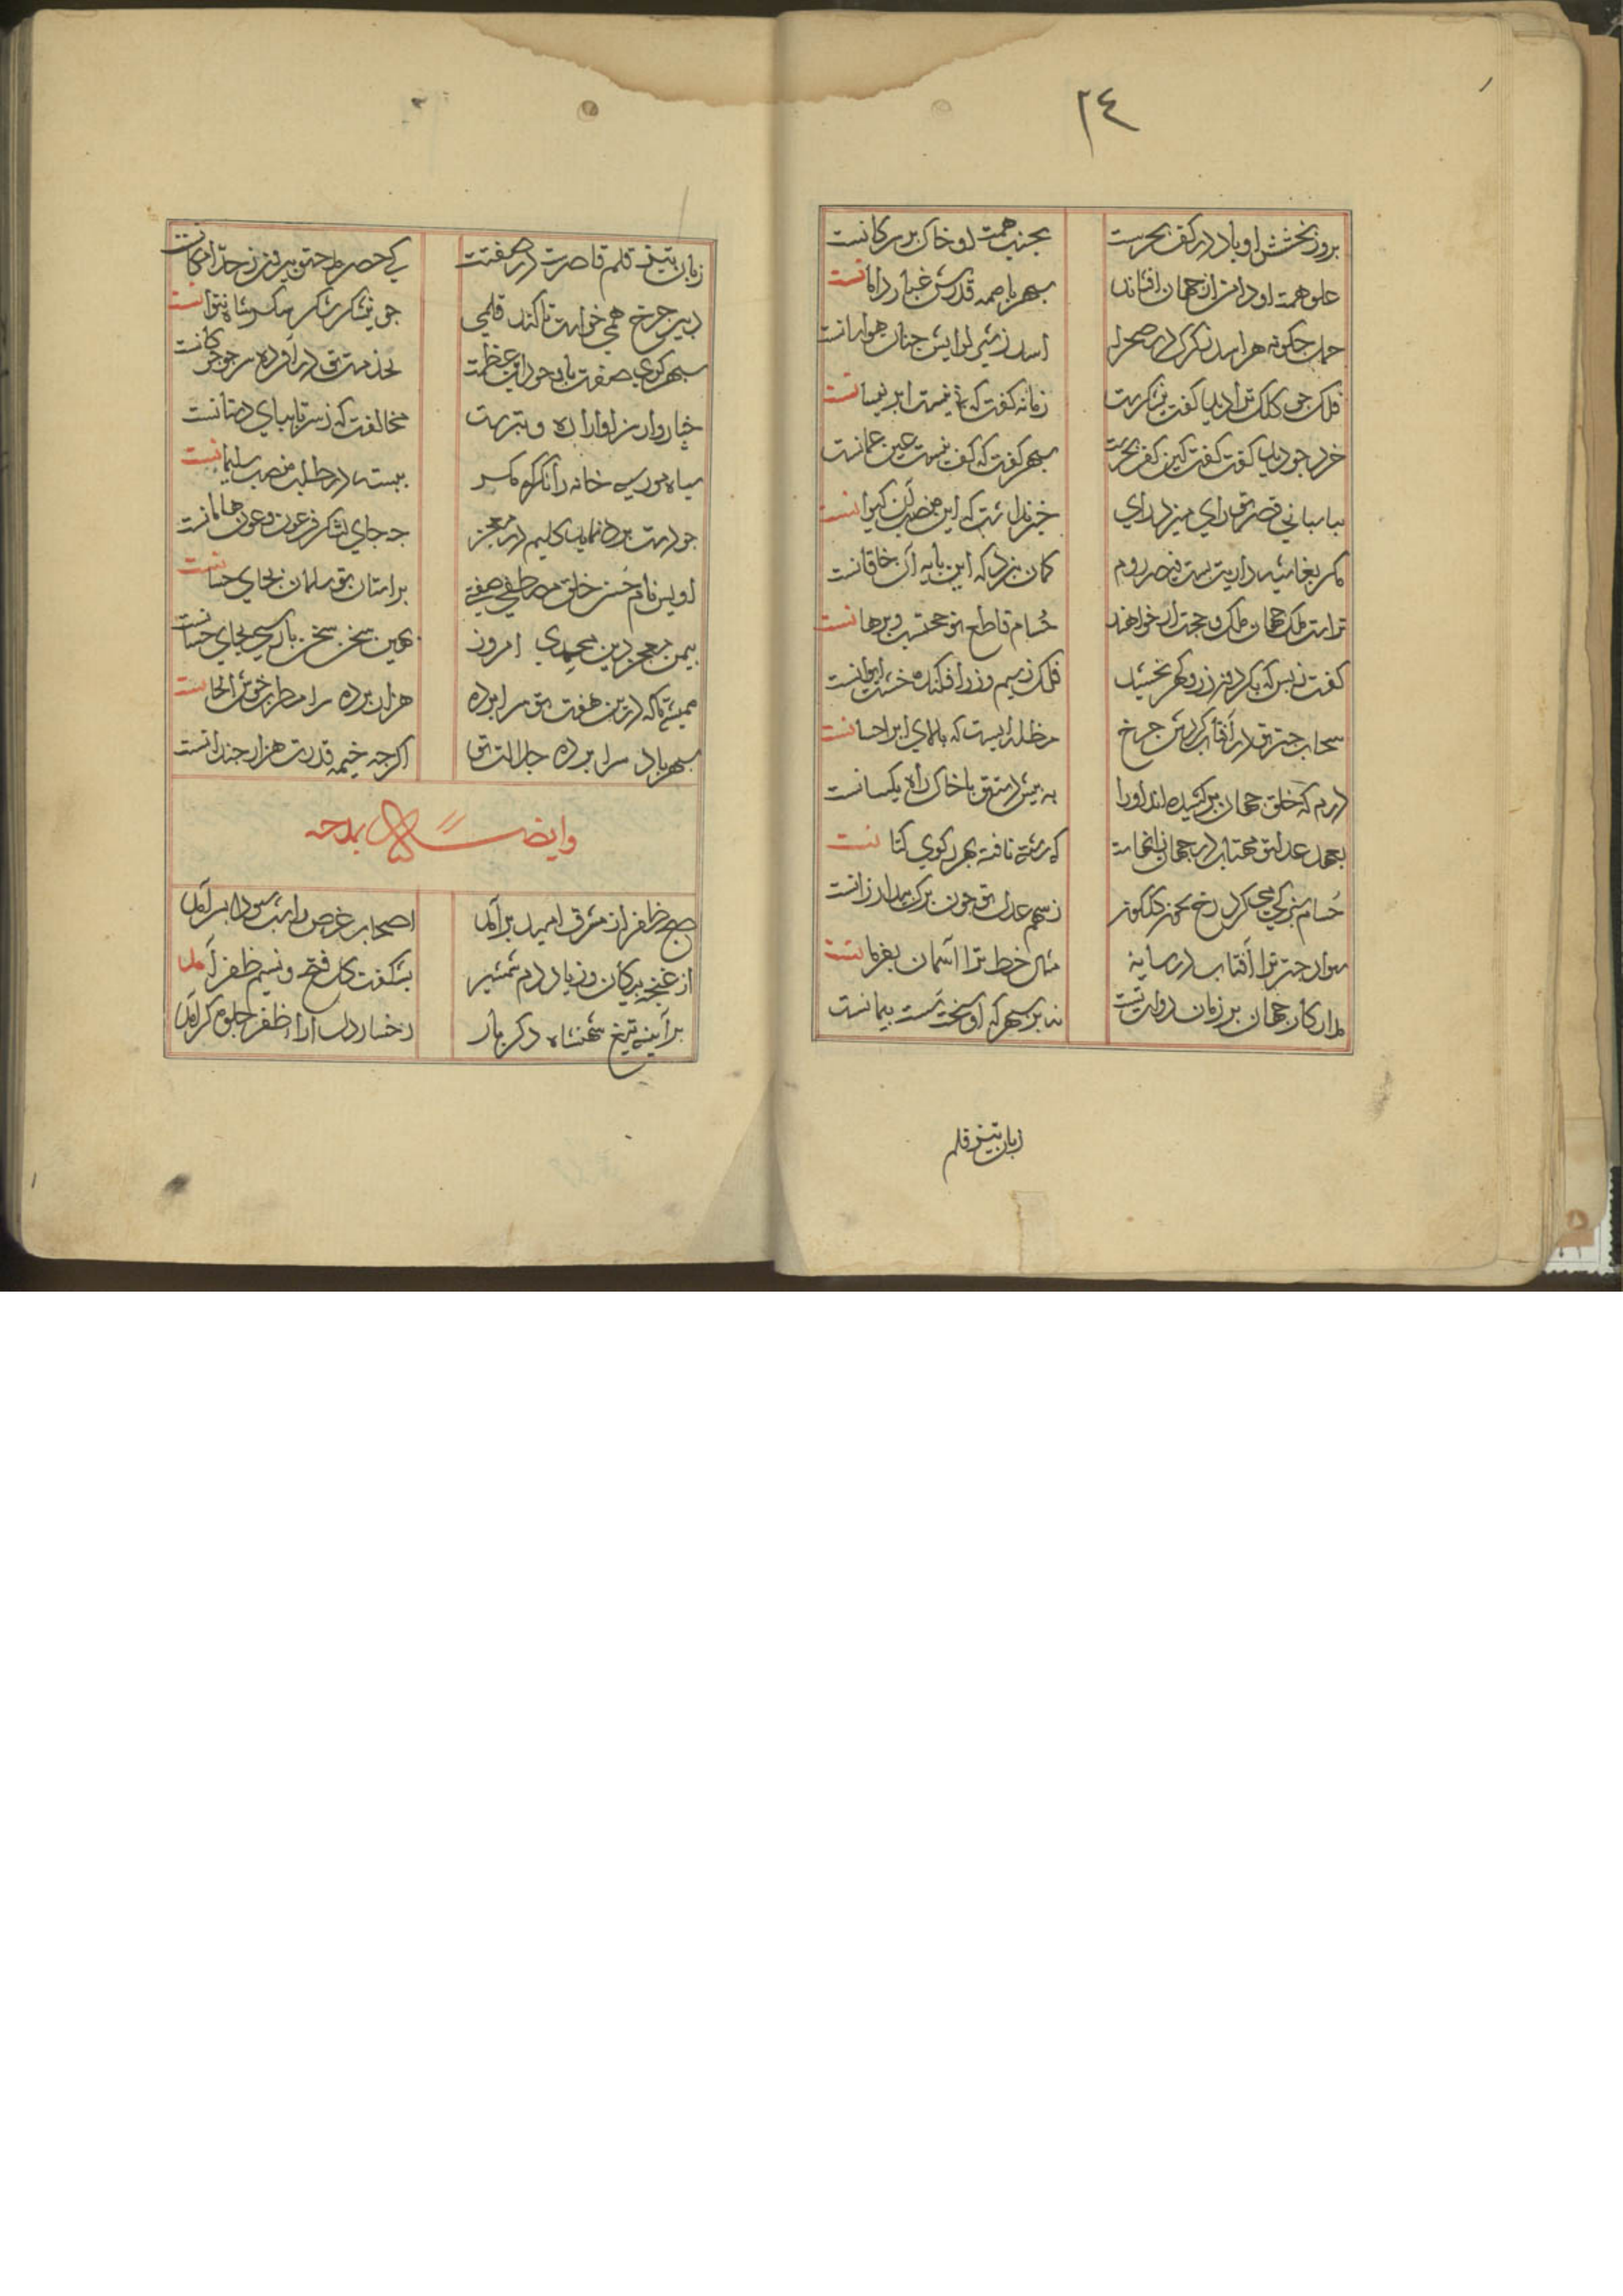 ٢٤
بروز بخشش او باد در کف بحرست بجنب همت او خاک بر سر کانست
علو همت او دامن از جهان افشاند سپهر با همه قدرش غبار دامانست
حمل چکونه هراسد ز کرک در صحرا اسد ز شیر لوایش چنان هراسانست
فلک چو کلک ترا دید کفت نیشکرست زمانه کفت که نی نیست ابر نیسانست
خرد چو دید کفت کفت کین کف بحرست سپهر کفت که کف نیست عین عمانست
بپاسبانی قصر تو رای میزد رای خرد نداشت که این منصب آن کیوانست
مکر بغاشیه داریت بست قیصر روم کمان نبرد که این پایه آن خاقانست
تراست ملک جهان ملک و حجت ار خواهند حسام قاطع تو حجتست و برهانست
کفت ز بس که بکرد زر و کهر بخشید فلک ز سیم و زر افکنده خشت ایوانست
سحاب چتر تو در آفتاب کردش چرخ مظله ایست که بالای ابر احسانست
درم که خلق جهان برکشیده اند او را به پیش دست تو با خاک راه یکسانست
بعهد عدل تو مهتاب در جهان تنهاست که رشته تافته بهر کوی کتانست
حسام کرد رخ چون کلکونه ز سهم عدل تو چون برک بید لرزانست
سواد چتر ترا آفتاب در سایه مثال خط ترا آسمان بفرمانست
مدار کار جهان بر زمان دولت تست نه بر سپهر که او سخت سست پیمانست
زبان تیز قلم
زبان تیز قلم قاصرست در صفتت کی حصر مدحت بیرون ز حد امکانست
دبیر چرخ همی خواست تا کند قلمی چو نیشکر شکر شاه نتوانست
سپهر کوی صفت با وجود این عظمت بخدمت تو در آورده سر چو چوکانست
خیاروار سزاوار اره و تبرست مخالفت که ز سر تا بپای دستانست
سیاه موری خانه را نکر کمر ببسته در طلب منصب سلیمانست
چو دست برد نماید کلیم در معجز چه جای لشکر فرعون و عون هامانست
اویس نام حسن خلق مصطفی صفتی بر استان تو سلمان بجای حسانست
بیمن معجز دین محمدی امروز همین سخن سخن پارسی بجای حسانست
همیشه تا که درین هفت تو سرابرده هزار برده سرا مطرب خوش الحانست
سپهر باد سرابرده جلالت تو اکرچه خیمه قدرت هزار چندانست
وایضا بمدحه
صبح ظفر از مشرق امید برآمد اصحاب غرض را شب سودا بسر آمد
از غنچه پیکان وز باد دم شمشیر بشکفت کل فتح و نسیم ظفر آمد
بر آینه تیغ شهنشاه دکر بار رخسار دل آرا ظفر جلوه کر آمد